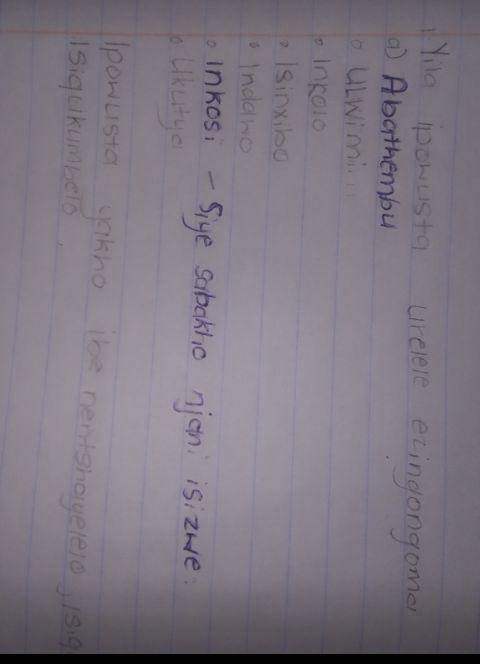 1. Yila ipowusta urelele ezingongoma
a) Abathembu
° Ulwimi...
° Inkolo
° Isinxibo
° Indawo
° Inkosi - Siye sabakho njani isizwe:
° Ukutya
Ipowusta yakho ibe nentshayelelo, isiq
Isiqukumbelo